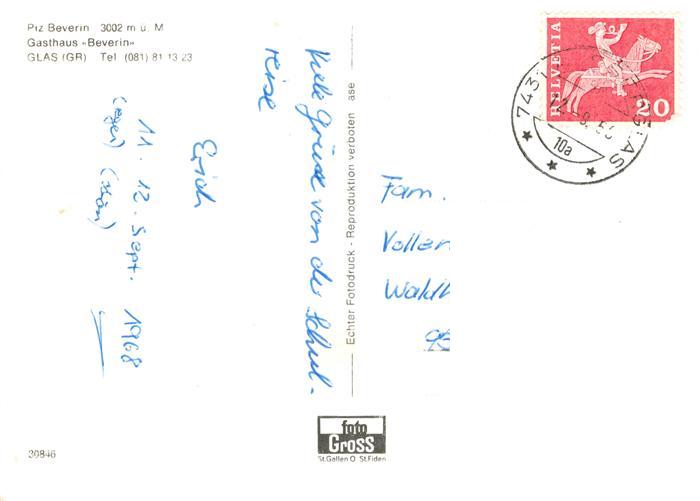 Piz Beverin 3002 m ü. M
Gasthaus «Beverin»
GLAS (GR) Tel (081) 81 13 23
Viele Grüsse von der Schul-
reise
Erich
11. 12. Sept. 1968
(Regen) (schön)
Echter Fotodruck - Reproduktion verboten ase
HELVETIA
20
743
GLAS
10a
Fam.
Waldh
foto
Gross
St.Gallen O St.Fiden
30846